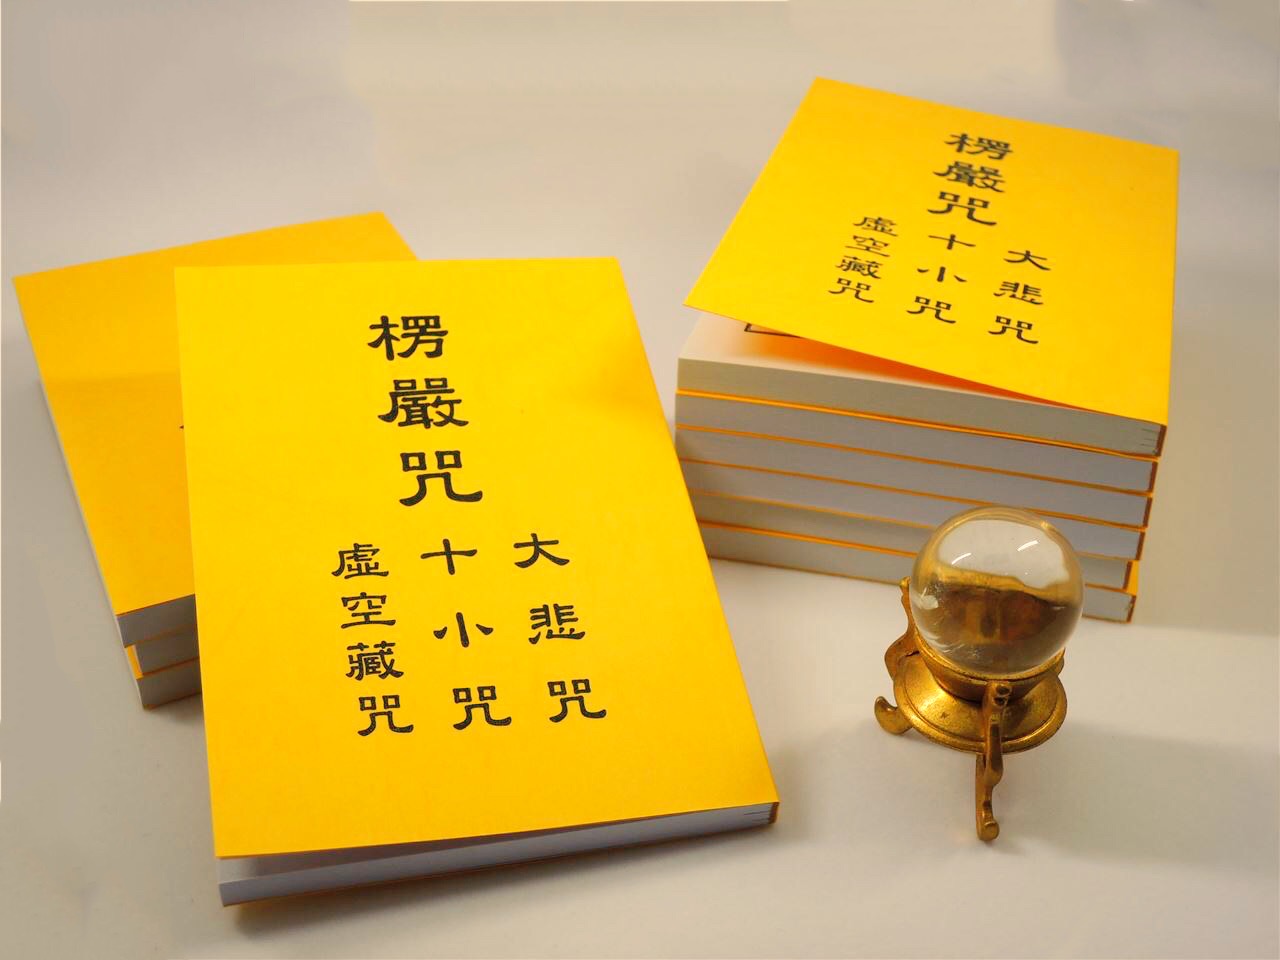 楞嚴咒
大悲咒
十小咒
虛空藏咒
楞嚴咒
大悲咒
十小咒
虛空藏咒